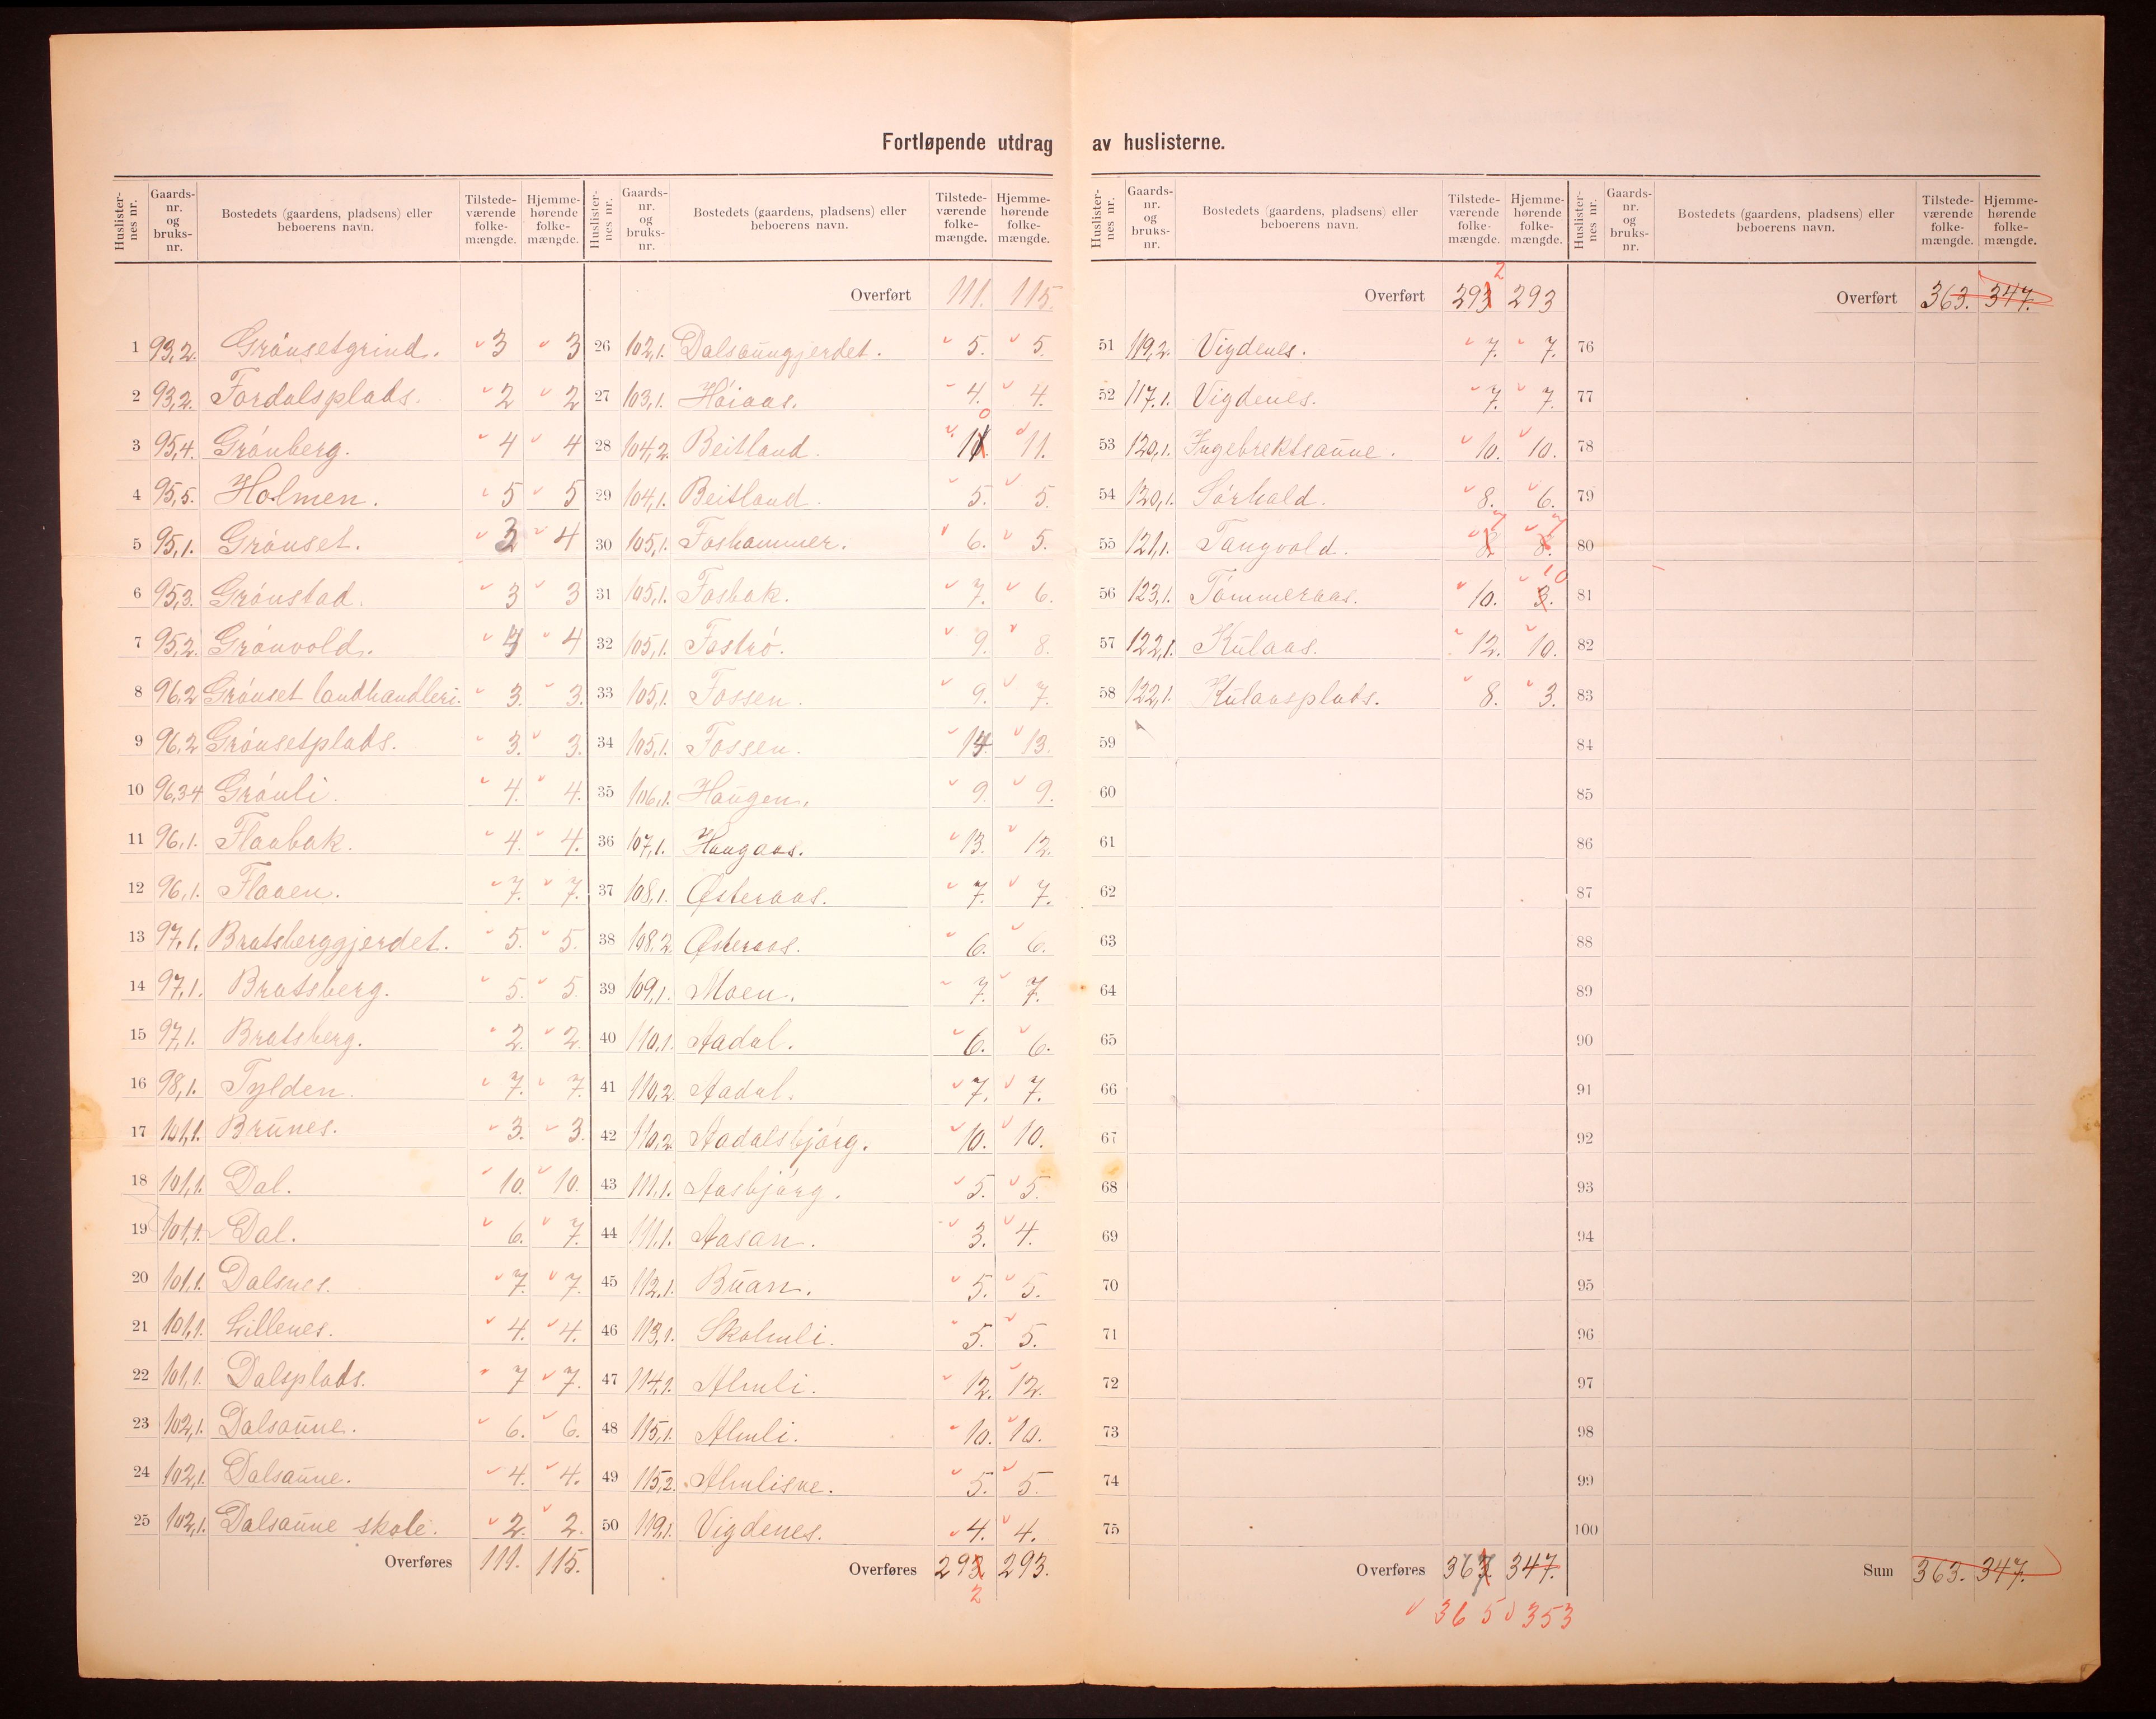 Fortløpende utdrag av huslisterne.
Huslisternes nr. Gaardsnr. og bruksnr. Bostedets (gaardens, pladsens) eller beboerens navn. Tilstedeværende folkemængde. Hjemmehørende folkemængde.
1 93,2. Grönsetgrind. 3 3
2 93,2. Fordalsplads. 2 2
3 95,4. Grönberg. 4 4
4 95,5. Holmen. 5 5
5 95,1. Grönset. 3 4
6 95,3. Grönstad. 3 3
7 95,2. Grönvold. 4 4
8 96,2 Grönset landhandleri. 3. 3.
9 96,2 Grönsetplads. 3. 3.
10 96,34 Grönli. 4. 4.
11 96,1. Flaabak. 4. 4.
12 96,1. Flaaen. 7. 7.
13 97,1. Bratsberggjerdet. 5. 5.
14 97,1. Bratsberg. 5. 5.
15 97,1. Bratsberg. 2. 2.
16 98,1. Tylden. 7. 7.
17 101,1. Brunes. 3. 3.
18 101,1. Dal. 10. 10.
19 101,1. Dal. 6. 7.
20 101,1. Dalsnes. 7. 7.
21 101,1. Lillenes. 4. 4.
22 101,1. Dalsplads. 7 7.
23 102,1. Dalsaune. 6. 6.
24 102,1. Dalsaune. 4. 4.
25 102,1. Dalsaune skole. 2. 2.
Overføres 111. 115.
Huslisternes nr. Gaardsnr. og bruksnr. Bostedets (gaardens, pladsens) eller beboerens navn. Tilstedeværende folkemængde. Hjemmehørende folkemængde.
Overført 111. 115.
26 102,1. Dalsaungjerdet. 5. 5.
27 103,1. Höiaas. 4. 4.
0
28 104,2. Beitland. 11. 11.
29 104,1. Beitland. 5. 5.
30 105,1. Foshammer. 6. 5.
31 105,1. Fosbak. 7. 6.
32 105,1. Foströ. 9. 8.
33 105,1. Fossen. 9. 7.
34 105,1. Fossen. 14. 13.
35 106,1. Haugen. 9. 9.
36 107,1. Haugaas. 13. 12.
37 108,1. Østeraas. 7. 7.
38 108.2. Østeraas. 6. 6.
39 109,1. Moen. 7. 7.
40 110,1. Aadal. 6. 6.
41 110,2. Aadal. 7. 7.
42 110,2. Aadalsbjörg. 10. 10.
43 111,1. Aasbjörg. 5. 5.
44 111,1. Aasan. 3. 4.
45 112,1. Buan. 5. 5.
46 113,1. Skolmli. 5. 5.
47 114,1. Almli. 12. 12.
48 115,1. Almli. 10. 10.
49 115,2. Almlisve. 5. 5.
50 119,1. Vigdenes. 4. 4.
Overføres 293 293.
2
Huslisternes nr. Gaardsnr. og bruksnr. Bostedets (gaardens, pladsens) eller beboerens navn. Tilstedeværende folkemængde. Hjemmehørende folkemængde.
2
Overført 293 293
51 119,2. Vigdenes. 7. 7.
52 117.1. Vigdenes. 7. 7.
53 120,1. Ingebrektsaune. 10. 10.
54 120,1. Sörhald. 8. 6.
7 7
55 121,1. Tangvold. 8. 8.
10
56 123,1. Tömmeraas. 10. 3.
57 122,1. Kulaas. 12. 10.
58 122,1. Kulaasplads. 8. 3.
59
60
61
62
63
64
65
66
67
68
69
70
71
72
73
74
75
Overføres 363 347.
365 353
Huslisternes nr. Gaardsnr. og bruksnr. Bostedets (gaardens, pladsens) eller beboerens navn. Tilstedeværende folkemængde. Hjemmehørende folkemængde.
Overført 363. 347.
76
77
78
79
80
81
82
83
84
85
86
87
88
89
90
91
92
93
94
95
96
97
98
99
100
Sum 363. 347.